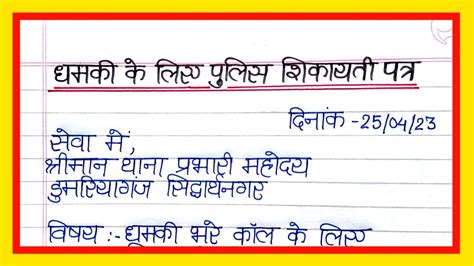 धमकी के लिए पुलिस शिकायती पत्र
दिनांक -25/04/23
सेवा में,
श्रीमान थाना प्रभारी महोदय
डुमरियागंज सिद्धार्थनगर
विषय :- धमकी भरे कॉल के लिए